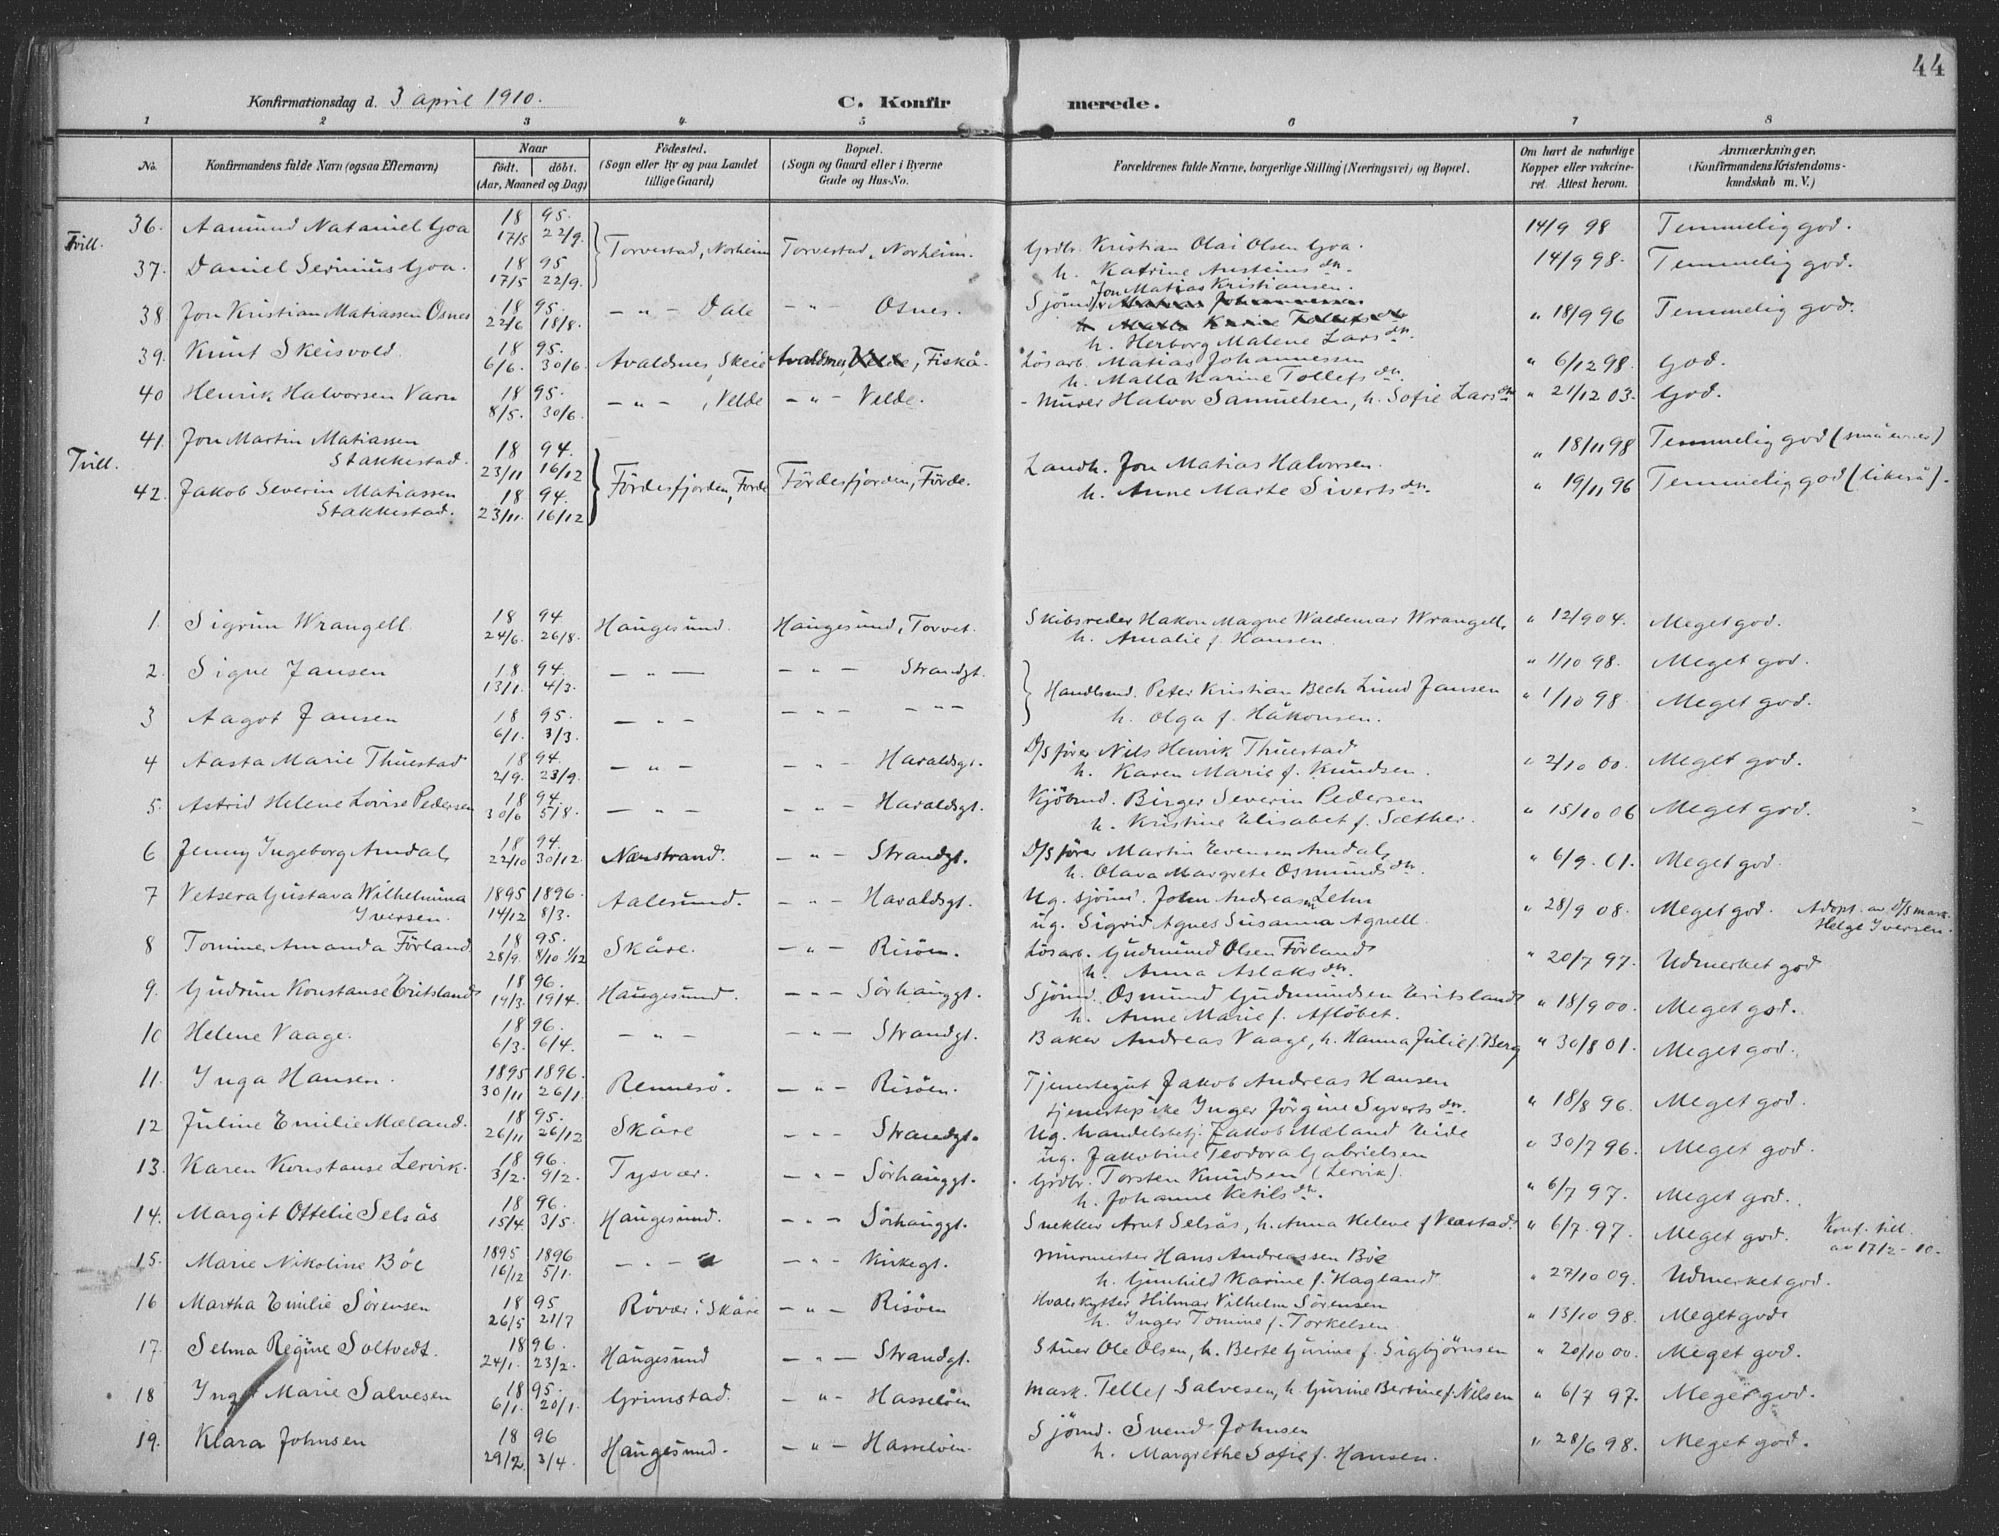 44
Konfirmationsdag d. 3 april 1910.
C. Konfirmerede.
1 2 3 4 5 6 7 8
No.
Konfirmandens fulde Navn (ogsaa Efternavn)
Naar født. døbt. (Aar, Maaned og Dag)
Födested. (Sogn eller By og paa Landet tillige Gaard)
Bopæl. (Sogn og Gaard eller i Byerne Gade og Hus-No.
Forældrenes fulde Navne, borgerlige Stilling (Næringsvei) og Bopæl.
Om havt de naturlige Kopper eller vakcineret. Attest herom.
Anmærkninger. (Konfirmandens Kristendomskundskab m. V.)
Tvill.
36. Aamund Nataniel Goa 18 95. 17/5 22/9. Torvestad, Norheim Torvestad, Norheim. Grdbr. Kristian Olai Olsen Goa. 14/9 98 Temmelig god.
37. Daniel Serinius Goa. 18 95 17/5 22/9. h. Katrine Austeins dtr. 14/9 98. Temmelig god.
38 Jon Kristian Matiassen Osnes 18 95. 22/6 18/8. — " — Dale — " — Osnes. Sjömd. Jon Matias Kristiansen.
h. Herborg Malene Lars dtr. " 18/9 96 Temmelig god.
39. Knut Skeisvold. 18 95. 6/6. 30/6. Avaldsnes, Skeie Avaldsnes, Velde, Fiskå. Lösarb. Matias Johannessen
h. Malla Karine Tollefs dtr. " 6/12 98. God.
40 Henrik Halvorsen Varn 18 95. 8/5. 30/6. — " — , Velde — " — Velde. Murer Halvor Samuelsen, h. Sofie Lars dtr " 21/12 03. God.
Tvill.
41. Jon Martin Matiassen
Stakkestad. 18 94. 23/11 16/12 Fördesfjorden, Förde Fördesfjorden, Förde. Landh. Jon Matias Halvorsen. " 18/11 98 Temmelig god (små evner)
42. Jakob Severin Matiassen
Stakkestad. 18 94. 23/11. 16/12 h. Anne Marte Siverts dtr. " 19/11 96 Temmelig god (likeså).
1. Sigrun Wrangell 18 94 24/6. 26/8. Haugesund. Haugesund, Torvet. Skibsreder Hakon Magne Waldemar Wrangell,
h. Amalie f. Hansen. " 12/9 04. Meget god.
2. Signe Jansen 18 94. 13/1. 4/3. — " — — " — Strandgt. " 1/10 98. Meget god.
Handlsmd. Peter Kristian Bech Lund Jansen
3 Aagot Jansen 18 95. 6/1. 3/3. — " — — " — — " — h. Olga f. Håkonsen. " 1/10 98. Meget god.
4 Aasta Marie Thuestad 18 94. 2/9. 23/9. — " — — " — Haraldsgt. D/S förer Nils Henrik Thuestad
h. Karen Marie f. Knudsen. " 2/10 00. Meget god.
5. Astrid Helene Lovise Pedersen 18 94. 30/6 5/8. — " — — " — Haraldsgt. Kjöbmd. Birger Severin Pedersen
h. Kristine Elisabet f. Sæther. " 15/10 06 Meget god.
6 Jenny Ingeborg Amdal, 18 94. 22/10 30/12. Nærstrand. — " — Strandgt. D/S förer Martin Evensen Amdal,
h. Olava Margrete Osmunds dtr. " 6/9. 01. Meget god.
7 Vetsera Gustava Wilhelmina
Iversen. 1895 1896. 14/12 8/3. Aalesund. — " — Haraldsgt. Ug. sjömd. John Andreas Lehn
ug. Sigrid Agnes Susanna Agnell. " 28/9 08. Meget god. Adopt. av D/S mask.
Helge Iversen.
8 Tomine Amanda Förland 18 95. 28/9. 8/10 1/12 Skåre. — " — Risöen. Lösarb. Gudmund Olsen Förland
h. Anna Aslaks dtr. " 20/7 97. Udmerket god
9. Gudrun Konstanse Eritsland 18 96. 19/3. 19/4. Haugesund. — " — Sörhauggt. Sjömd. Osmund Gudmundsen Eritsland
h. Anne Marie f. Aflöbet. " 18/9 00. Meget god.
10 Helene Vaage. 18 96. 6/3. 6/4. — " — — " — Strandgt. Baker Andreas Vaage, h. Hanna Julie f. Berg " 30/8 01. Meget god.
11. Inga Hansen. 1895 1896. 30/11 26/1. Rennesö. — " — Risöen. Tjenestegut Jakob Andreas Hansen
tjenestepike Inger Jörgine Syverts dtr. " 18/8 96. Meget god.
12 Juline Emilie Mæland. 18 95. 26/11 26/12 Skåre — " — Strandgt. Ug. handelsbetj. Jakob Mæland Eide
ug. Jakobine Teodora Gabrielsen " 30/7 96. Meget god.
13. Karen Konstanse Lervik. 18 96. 3/2. 9/2. Tysvær. — " — Sörhauggt. Grdbr. Torsten Knudsen (Lervik).
h. Johanne Ketils dtr. " 6/7 97. Meget god.
14. Margit Ottelie Selsås 18 96. 15/4 3/5. Haugesund. — " — Sörhauggt. Snekker Arnt Selsås, h. Anna Helene f Veastad " 6/7. 97. Meget god. Konf. till.
av 17/2 - 10.
15. Marie Nikoline Böe 1895 1896 16/12 5/1. — " — — " — Kirkegt. Murmester Hans Andreassen Böe
h. Gunhild Karine f. Hagland. " 27/10 09. Udmerket god.
16 Martha Emilie Sörensen 18 95 26/5 21/7 Rövær i Skåre — " — Risöen Hvalskytter Hilmar Vilhelm Sörensen
h. Inger Tomine f. Torkelsen. " 13/10 98. Meget god.
17. Selma Regine Soltvedt. 18 96. 24/1. 23/2. Haugesund — " — Strandgt. Stuer Ole Olsen, h. Berte Gurine f. Sigbjörnsen " 20/10 00. Meget god.
18 Inga Marie Salvesen 18 95. 6/1. 20/1. Grimstad. — " — Hasselöen Mask. Tellef Salvesen, h. Gurine Bertine f. Nilsen " 6/7 97. Meget god.
19. Klara Johnsen 18 96 29/2. 3/4. Haugesund. — " — Hasselöen. Sjömd. Svend Johnsen
h. Margrethe Sofie f. Hansen. " 28/6 98. Meget god.